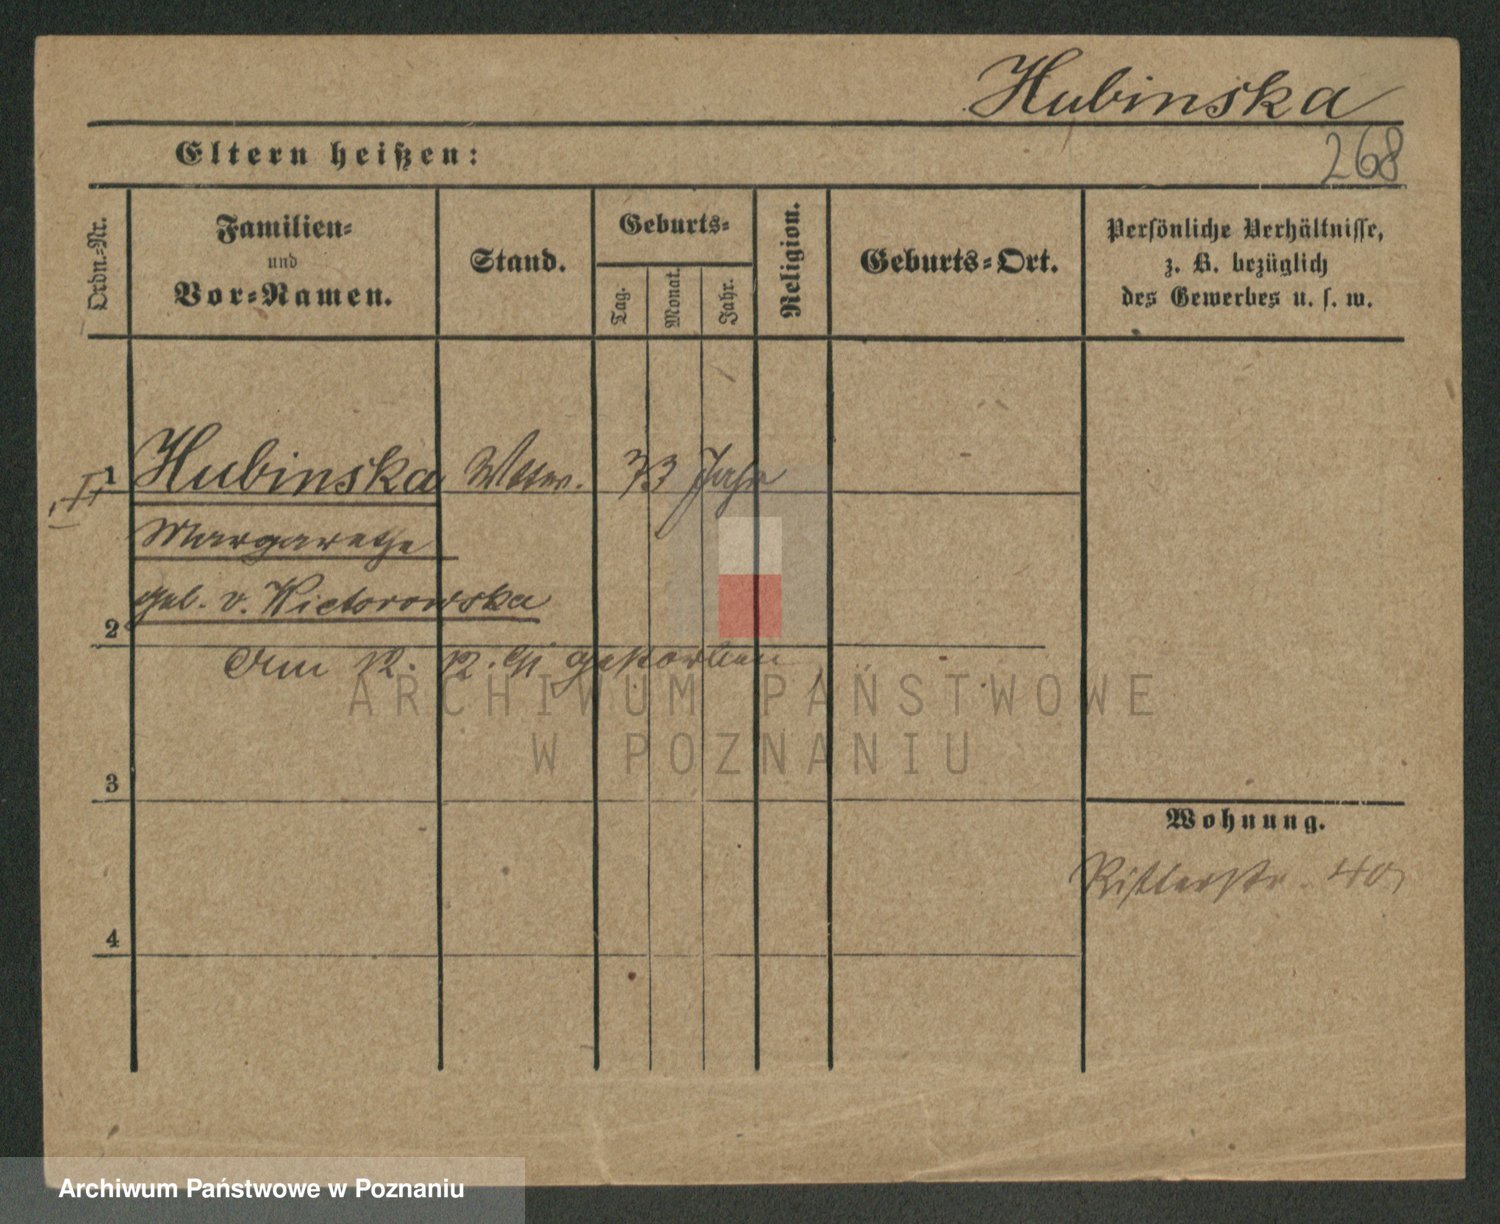 Hubinska
Eltern heißen:
268
Ordn.-Nr.
Familien-
und
Vor-Namen.
Stand.
Geburts-
Tag.
Monat.
Jahr.
Religion.
Geburts-Ort.
Persönliche Verhältnisse,
z. B. bezüglich
des Gewerbes u. s. w.
1 Hubinska Wttw. 73 Jahr
Margarethe
geb. v. Wictorowska
2
Am 12. 12. gestorben
ARCHIWUM PAŃSTWOWE
W POZNANIU
3
Wohnung.
Ritterstr. 40
4
Archiwum Państwowe w Poznaniu